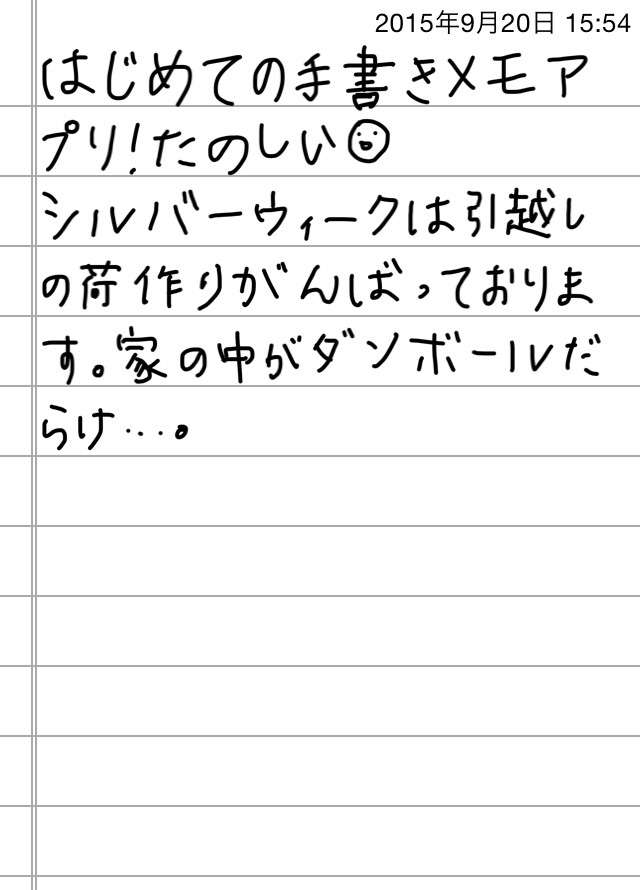 2015年9月20日 15:54
はじめての手書きメモア
プリ!たのしい
シルバーウィークは引越し
の荷作りがんばっておりま
す。家の中がダンボールだ
らけ…。